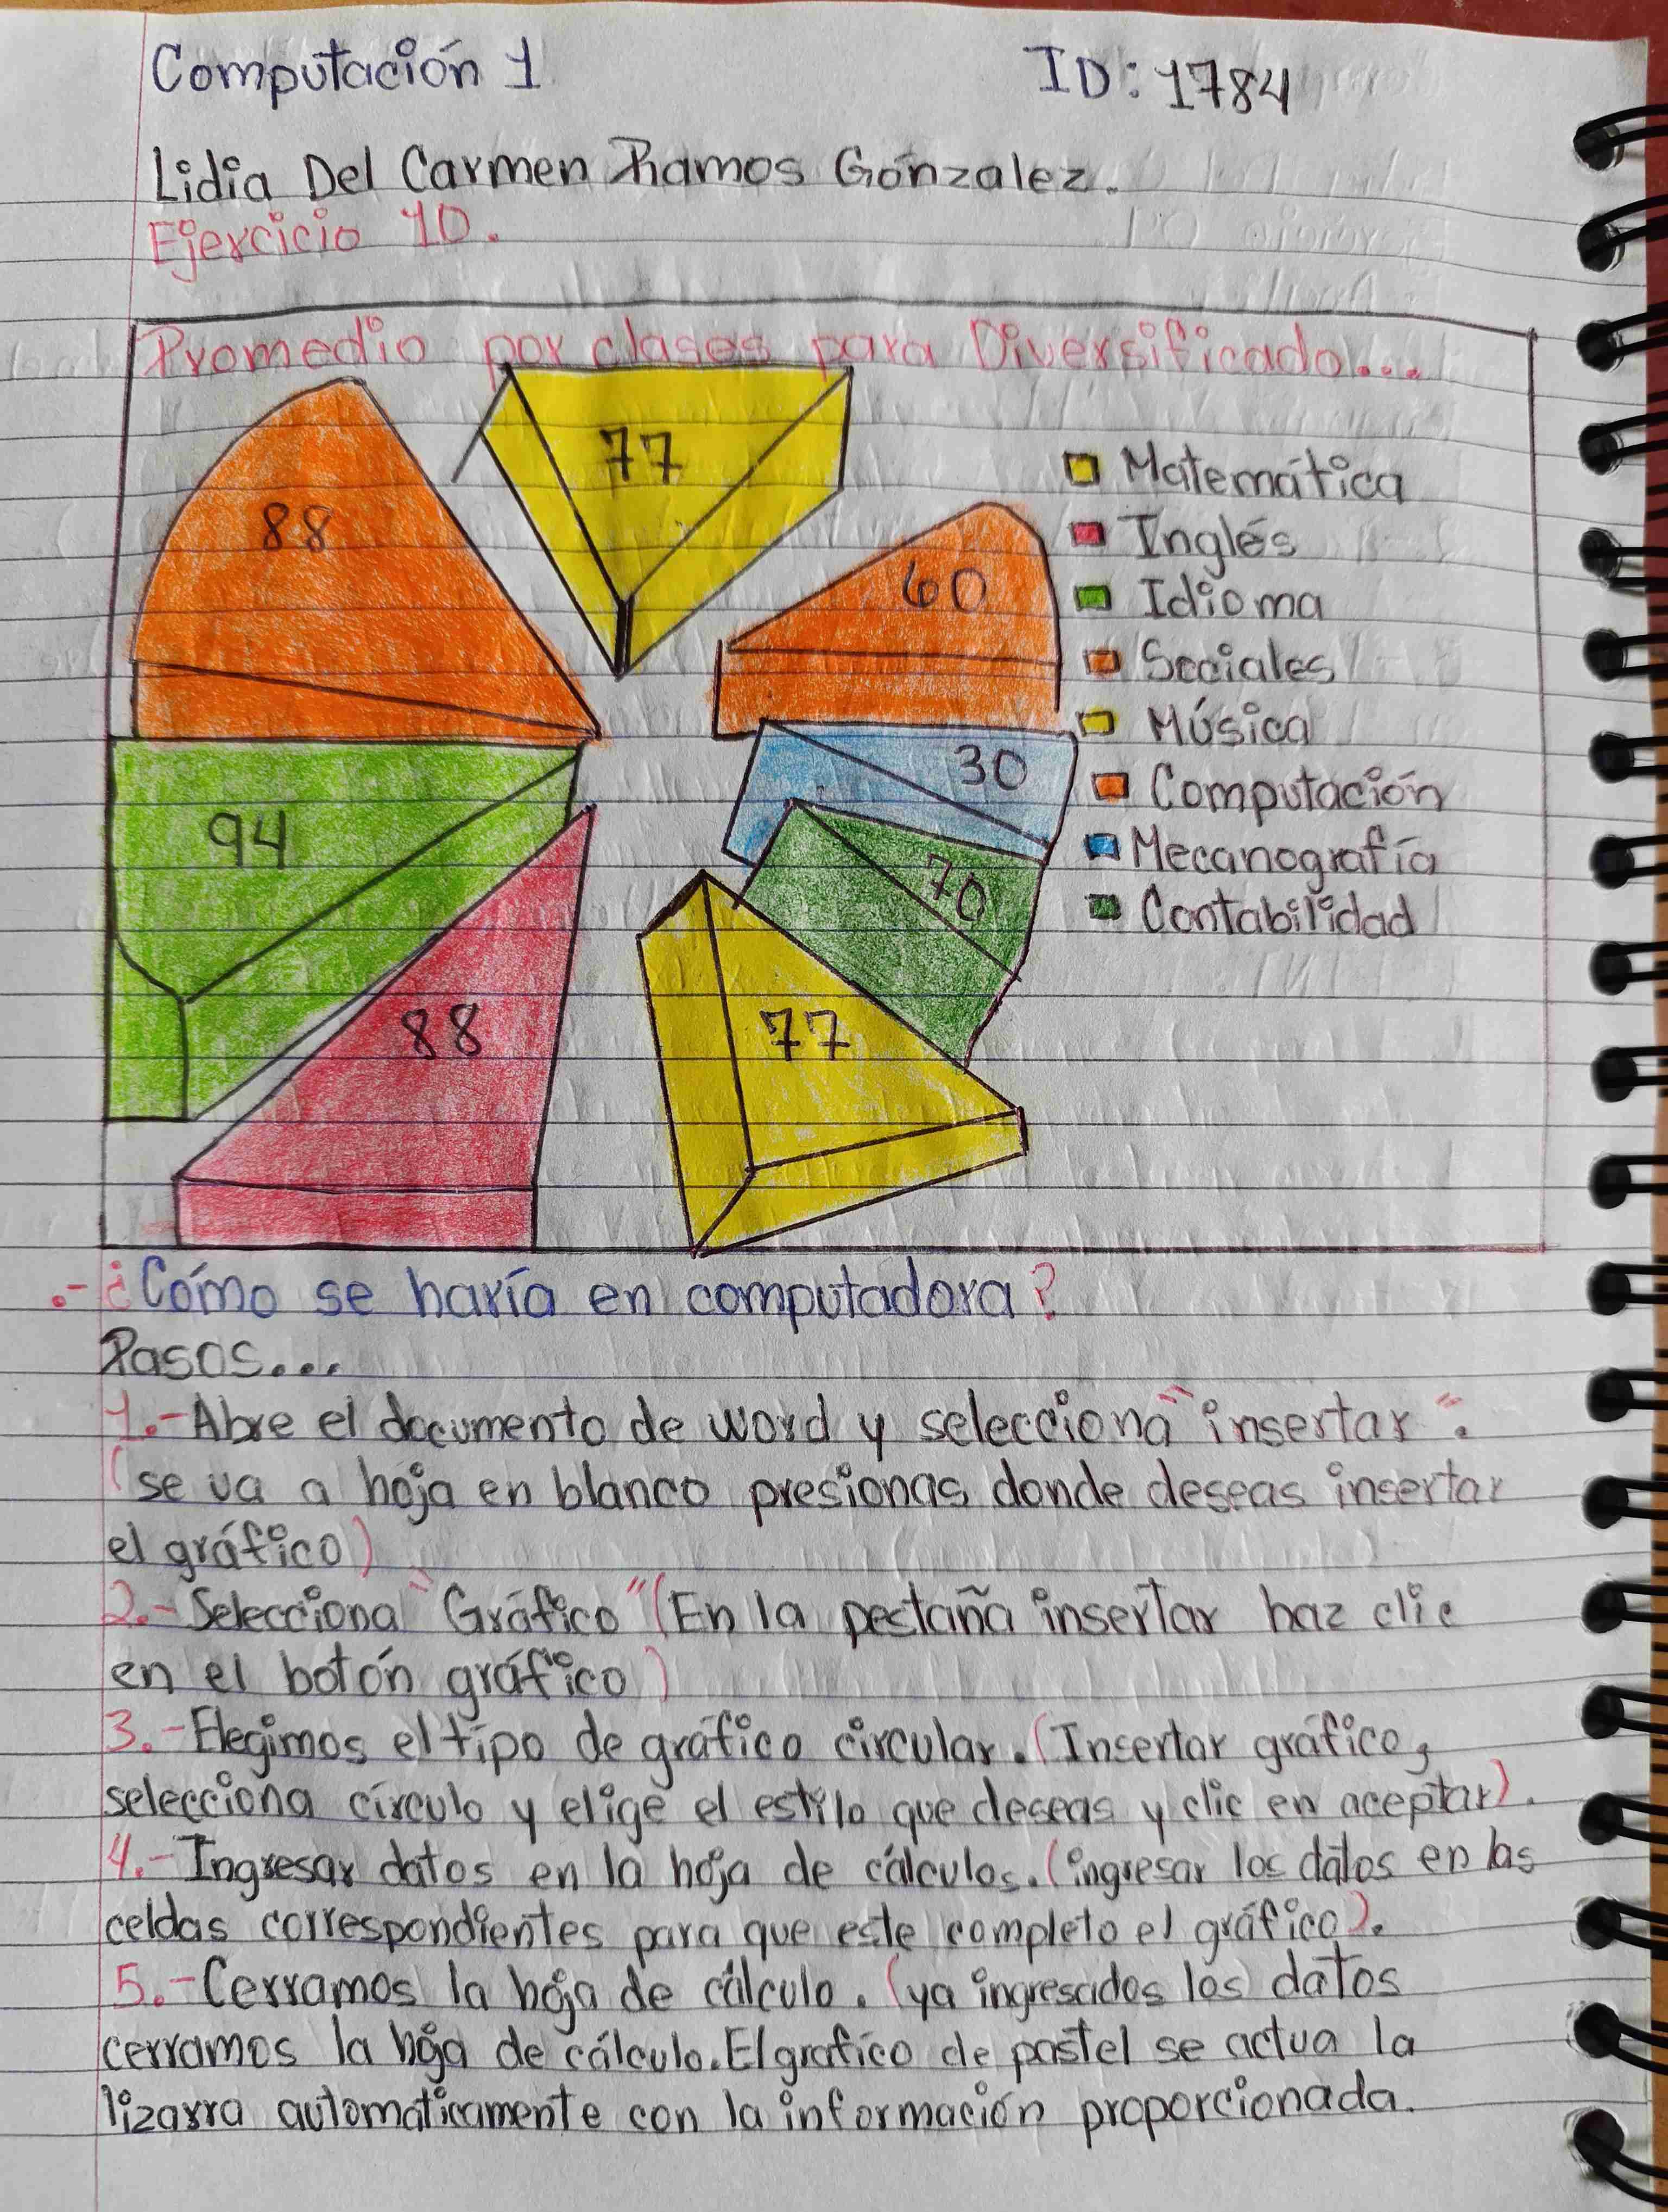 Computación 1
ID: 1784
Lidia Del Carmen Ramos Gónzalez.
Ejercicio 10.
Promedio por clases para Diversificado...
77
88
60
30
94
70
88
77
Matemática
Inglés
Idioma
Sociales
Música
Computación
Mecanografía
Contabilidad
.-¿Cómo se haría en computadora?
Pasos...
1.-Abre el documento de word y selecciona "insertar".
(se va a hoja en blanco presionas donde deseas insertar
el gráfico)
2.-Selecciona "Gráfico" (En la pestaña insertar haz clic
en el botón gráfico)
3.-Elegimos el tipo de gráfico circular. (Insertar gráfico,
selecciona círculo y elige el estilo que deseas y clic en aceptar).
4.-Ingresar datos en la hoja de cálculos. (ingresar los datos en las
celdas correspondientes para que este completo el gráfico).
5.-Cerramos la hoja de cálculo. (ya ingresados los datos
cerramos la hoja de cálculo. El grafico de pastel se actua la
lizarra automáticamente con la información proporcionada.